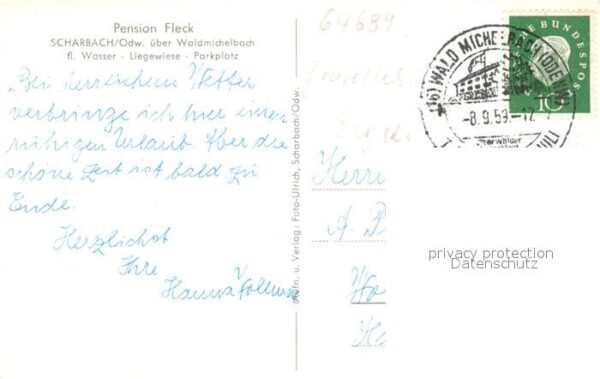 Pension Fleck
SCHARBACH/Odw. über Waldmichelbach
fl. Wasser - Liegewiese - Parkplatz
"Bei herrlichem Wetter
verbringe ich hier einen
ruhigen Urlaub. Aber die
schöne Zeit ist bald zu
Ende.
Herzlichst
Ihre
Hanna
Aufn. u. Verlag: Foto-Ulrich, Scharbach/Odw.
64689
(16) WALD MICHELBACH (ODENW)
-8.9.59.-12
E BUNDESPOS
10
Herrn
privacy protection
Datenschutz